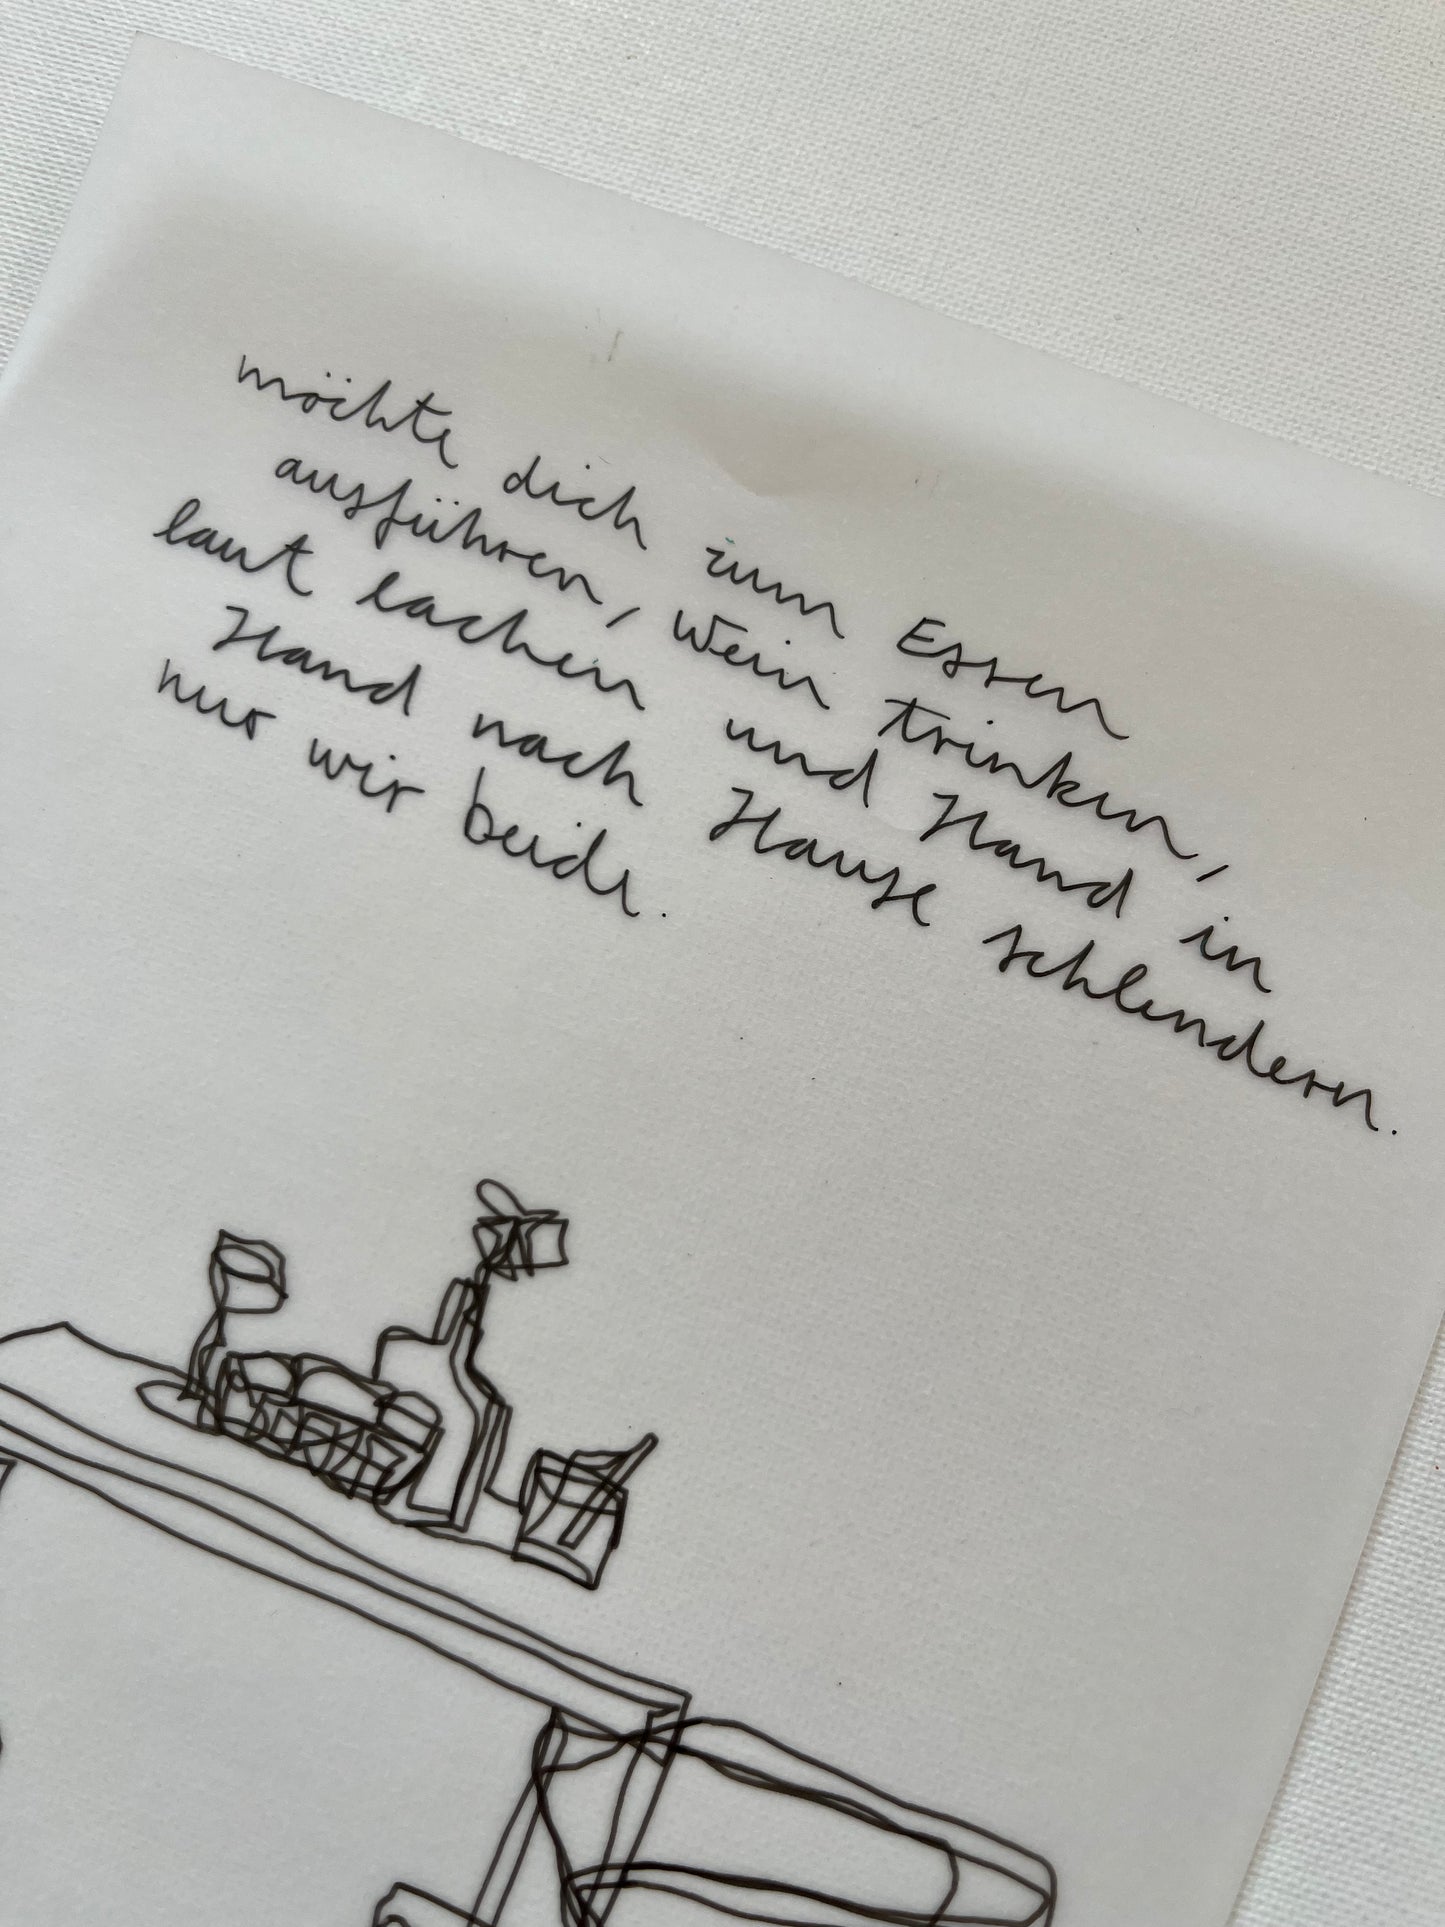 möchte dich zum Essen
ausführen, Wein trinken,
laut lachen und Hand in
Hand nach Hause schlendern.
nur wir beide.